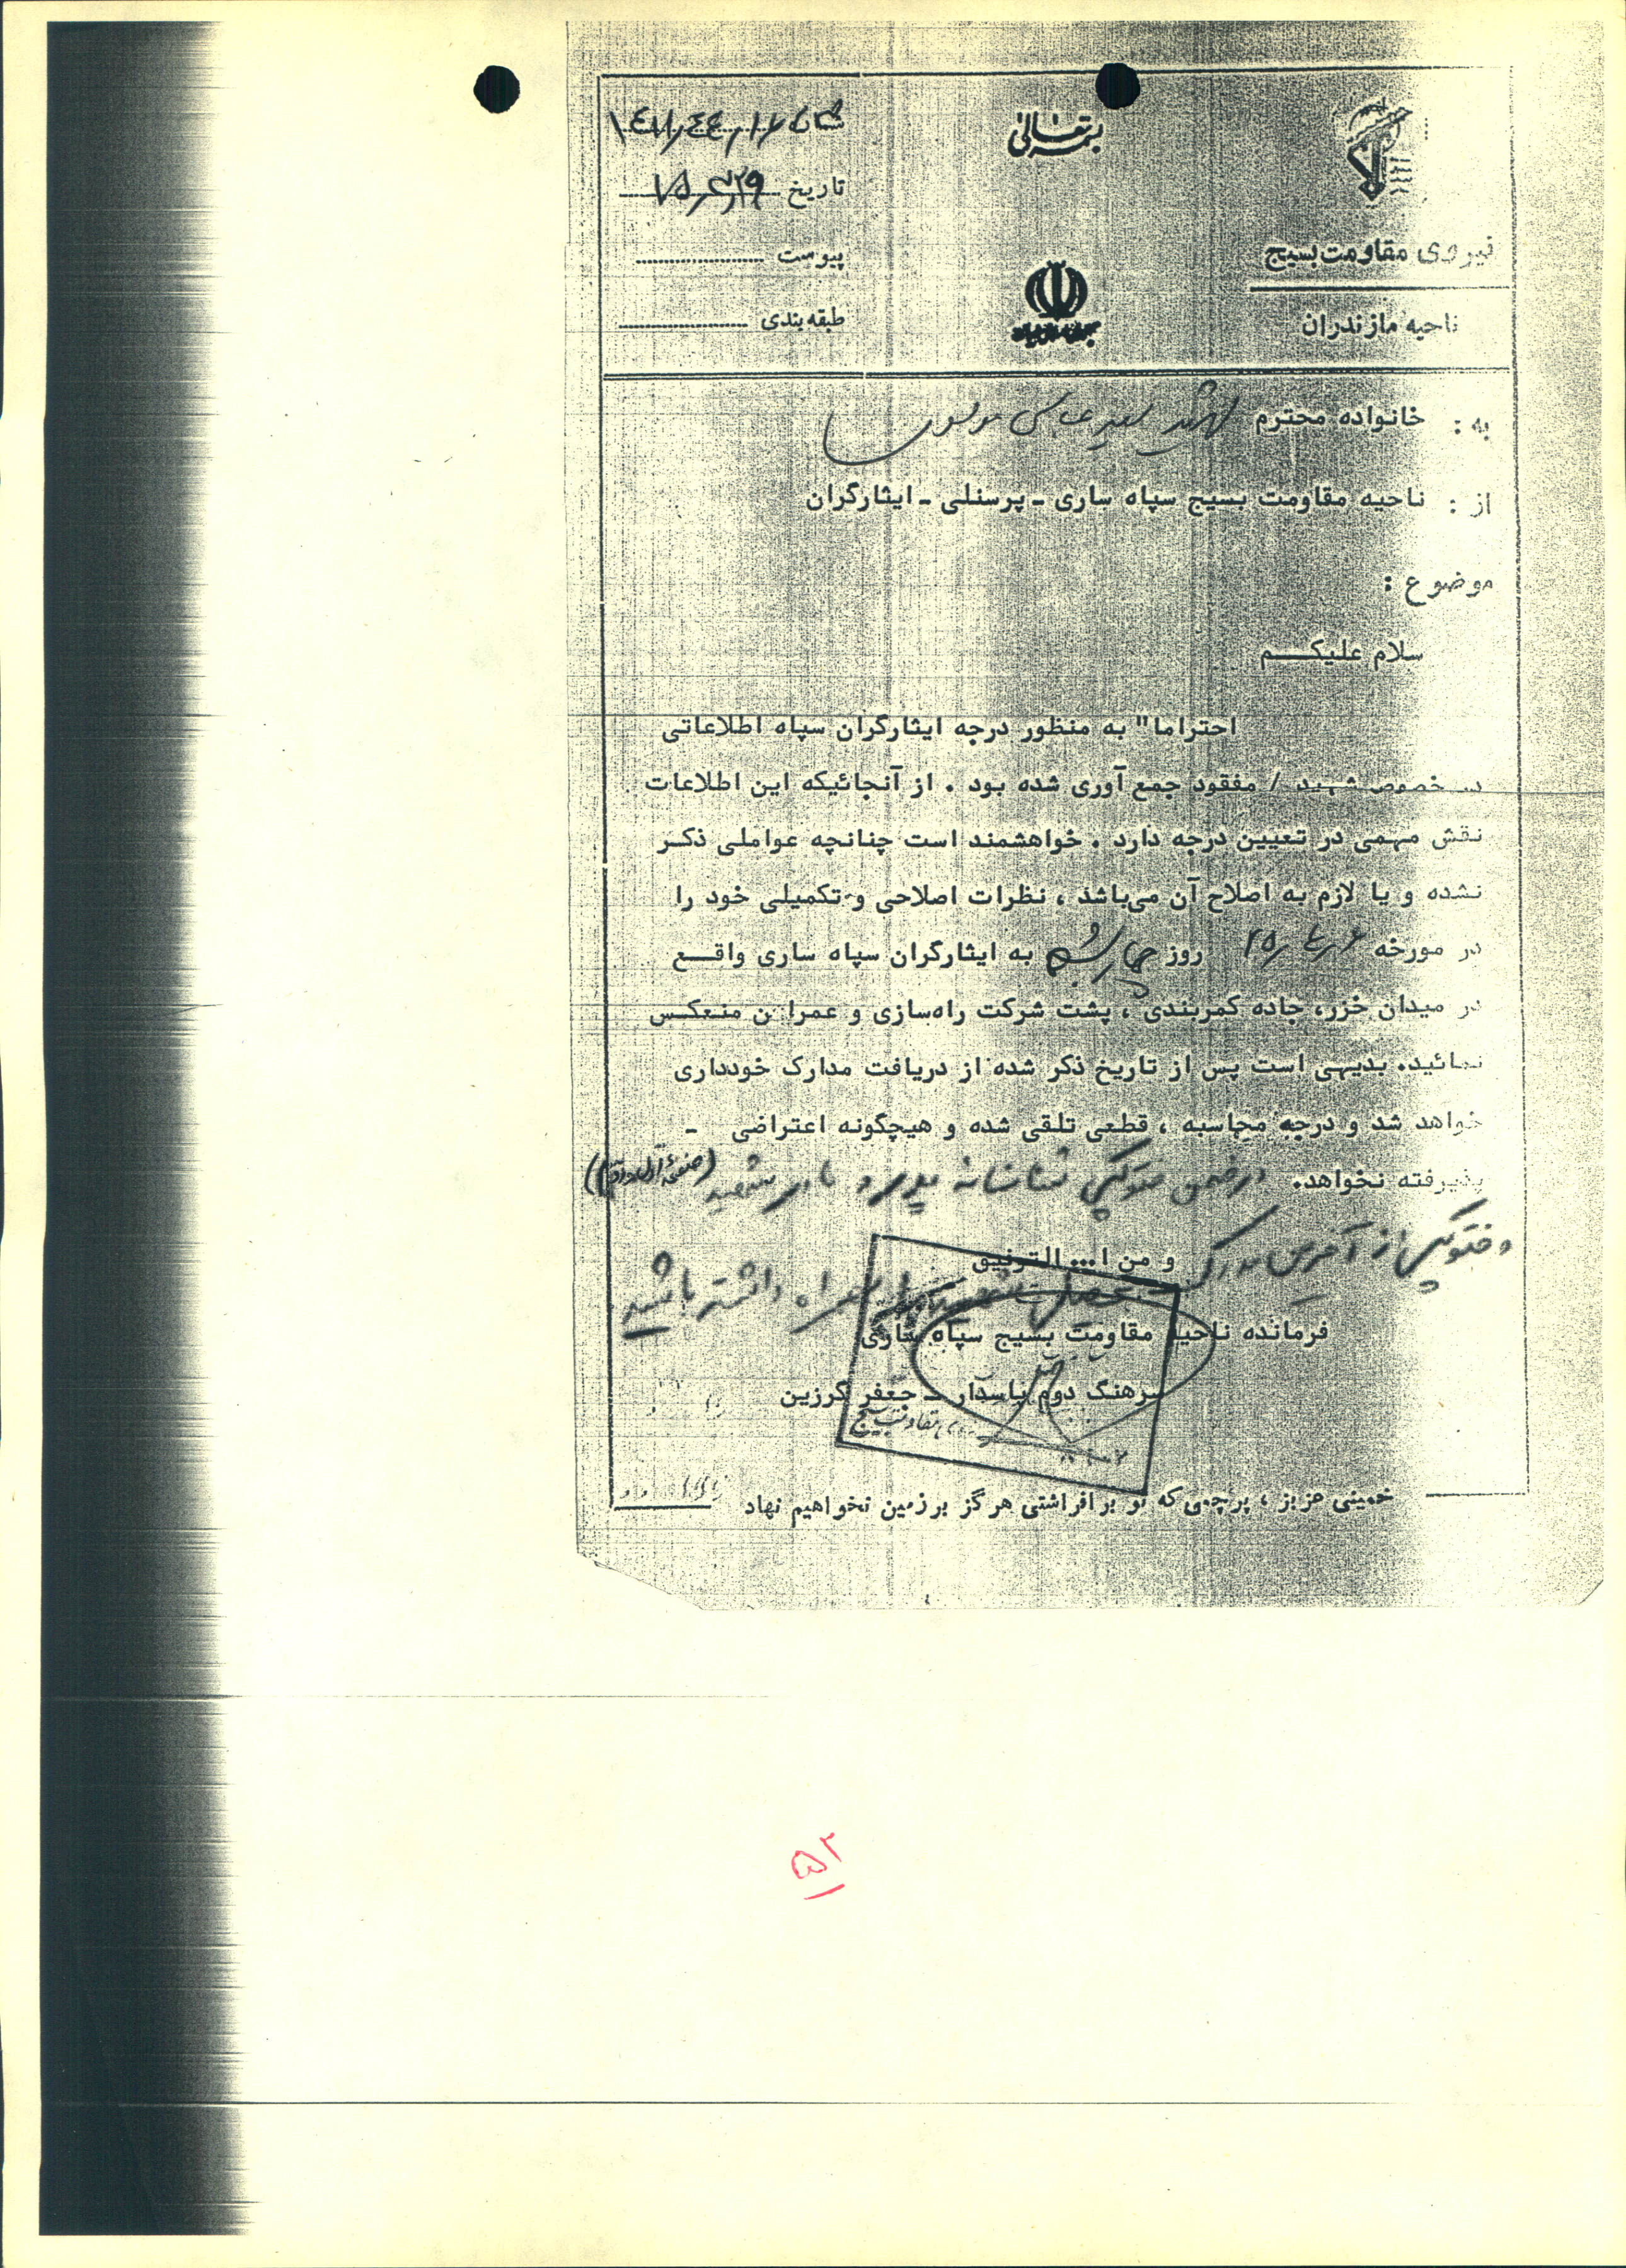 بسمه تعالی
شماره
تاریخ ۷۵/۳/۲۹
پیوست
طبقه بندی
نیروی مقاومت بسیج
ناحیه مازندران
جمهوری اسلامی ایران
به : خانواده محترم شهید سید عباس موسوی
از : ناحیه مقاومت بسیج سپاه ساری - پرسنلی - ایثارگران
موضوع :
سلام علیکم
احتراما" به منظور درجه ایثارگران سپاه اطلاعاتی
در خصوص شهید / مفقود جمع آوری شده بود . از آنجائیکه این اطلاعات
نقش مهمی در تعیین درجه دارد . خواهشمند است چنانچه عواملی ذکر
نشده و یا لازم به اصلاح آن می‌باشد ، نظرات اصلاحی و تکمیلی خود را
در مورخه روز چهارشنبه به ایثارگران سپاه ساری واقع
در میدان خزر، جاده کمربندی ، پشت شرکت راه‌سازی و عمران منعکس
نمائید. بدیهی است پس از تاریخ ذکر شده از دریافت مدارک خودداری
خواهد شد و درجه محاسبه ، قطعی تلقی شده و هیچگونه اعتراضی -
پذیرفته نخواهد. در ضمن فتوکپی شناسنامه پدر و مادر شهید (صفحه اول و دوم)
و فتوکپی از آخرین مدرک تحصیلی شهید را همراه داشته باشید
و من ا... التوفیق
فرمانده ناحیه مقاومت بسیج سپاه ساری
سرهنگ دوم پاسدار - جعفر گرزین
خمینی عزیز ، پرچمی که تو برافراشتی هرگز بر زمین نخواهیم نهاد
۵۲